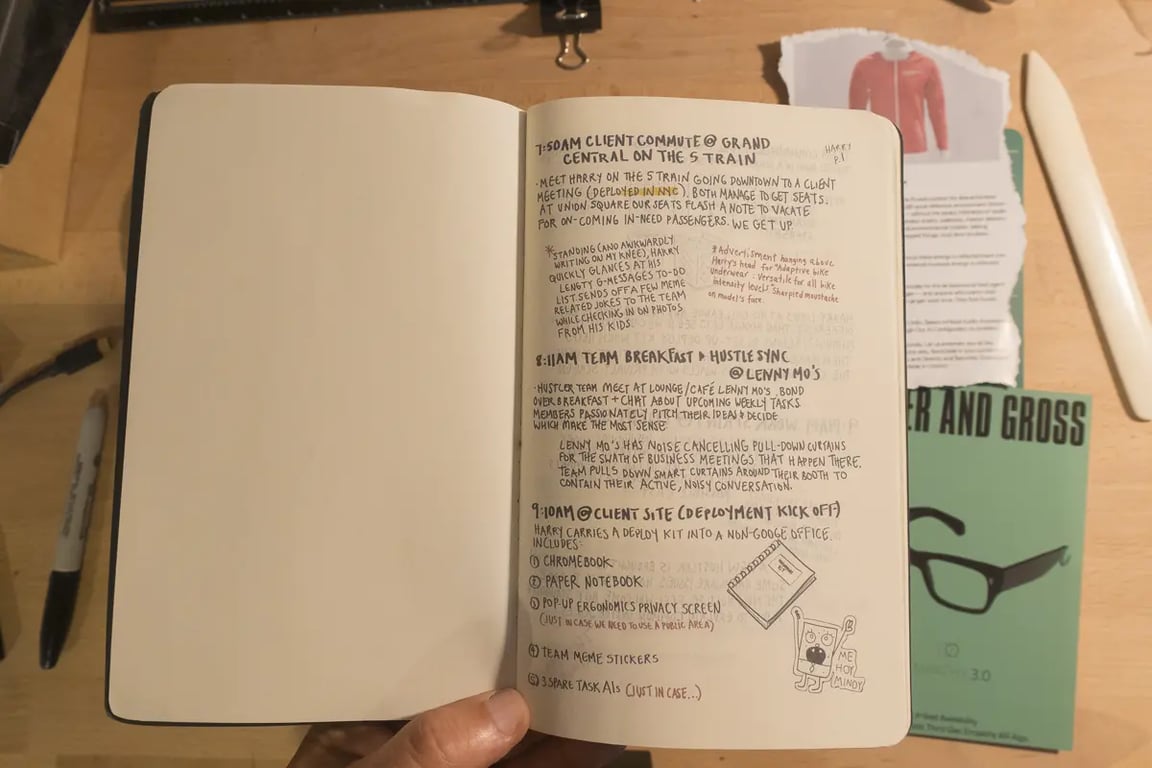 7:50AM CLIENT COMMUTE @ GRAND
CENTRAL ON THE 5 TRAIN
HARRY
P.1
·MEET HARRY ON THE 5 TRAIN GOING DOWNTOWN TO A CLIENT
MEETING (DEPLOYED IN NYC). BOTH MANAGE TO GET SEATS.
AT UNION SQUARE OUR SEATS FLASH A NOTE TO VACATE
FOR ON-COMING IN-NEED PASSENGERS. WE GET UP.
*STANDING (AND AWKWARDLY
WRITING ON MY KNEE), HARRY
QUICKLY GLANCES AT HIS
LENGTY G-MESSAGES TO-DO
LIST. SENDS OFF A FEW MEME
RELATED JOKES TO THE TEAM
WHILE CHECKING IN ON PHOTOS
FROM HIS KIDS.
*Advertisment hanging above
Harry's head for "Adaptive bike
underwear: Versatile for all bike
intensity levels. Sharpied moustache
on model's face.
8:11AM TEAM BREAKFAST + HUSTLE SYNC
@ LENNY MO'S
·HUSTLER TEAM MEET AT LOUNGE/CAFÉ LENNY MO'S. BOND
OVER BREAKFAST + CHAT ABOUT UPCOMING WEEKLY TASKS
MEMBERS PASSIONATELY PITCH THEIR IDEAS & DECIDE
WHICH MAKE THE MOST SENSE.
LENNY MO'S HAS NOISE CANCELLING PULL-DOWN CURTAINS
FOR THE SWATH OF BUSINESS MEETINGS THAT HAPPEN THERE.
TEAM PULLS DOWN SMART CURTAINS AROUND THEIR BOOTH TO
CONTAIN THEIR ACTIVE, NOISY CONVERSATION.
9:10AM @ CLIENT SITE (DEPLOYMENT KICK OFF)
HARRY CARRIES A DEPLOY KIT INTO A NON-GOOGE OFFICE.
INCLUDES:
① CHROMEBOOK
② PAPER NOTEBOOK
③ POP-UP ERGONOMICS PRIVACY SCREEN
(JUST IN CASE WE NEED TO USE A PUBLIC AREA)
④ TEAM MEME STICKERS
⑤ 3 SPARE TASK AIs (JUST IN CASE...)
ME
HOY
MINOY
ER AND GROSS
3.0